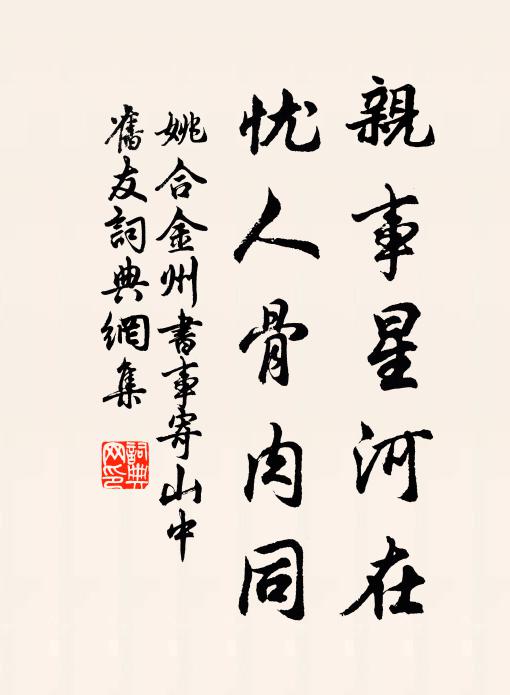 親事星河在
忧人骨肉同
姚合金州書事寄山中
舊友詞典網集
詞典
网印